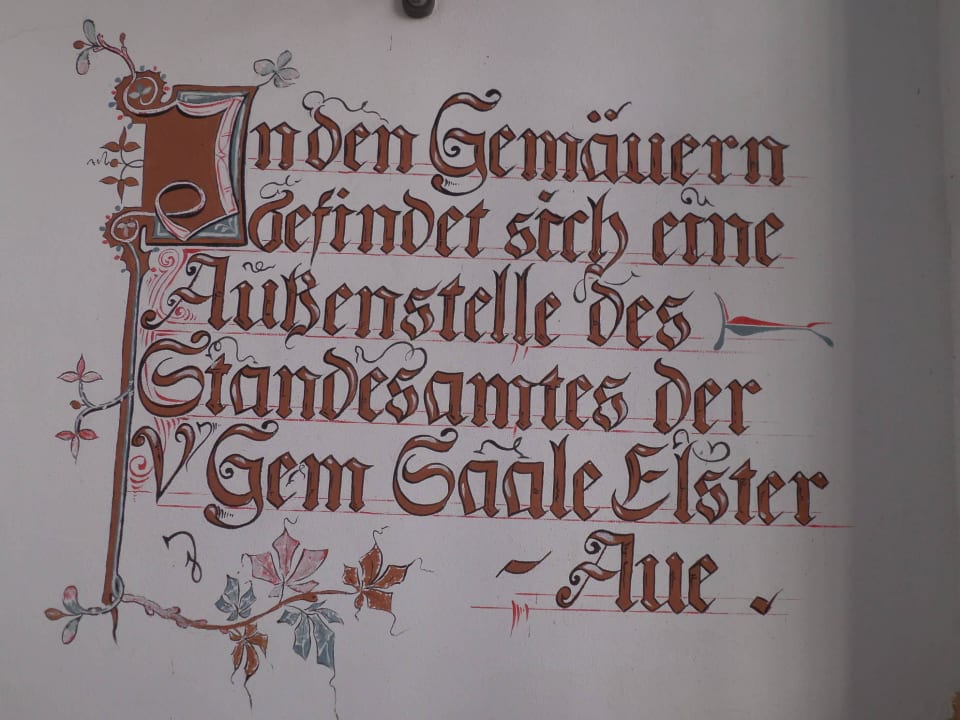 In den Gemäuern
befindet sich eine
Außenstelle des
Standesamtes der
VGem Saale Elster
- Aue .